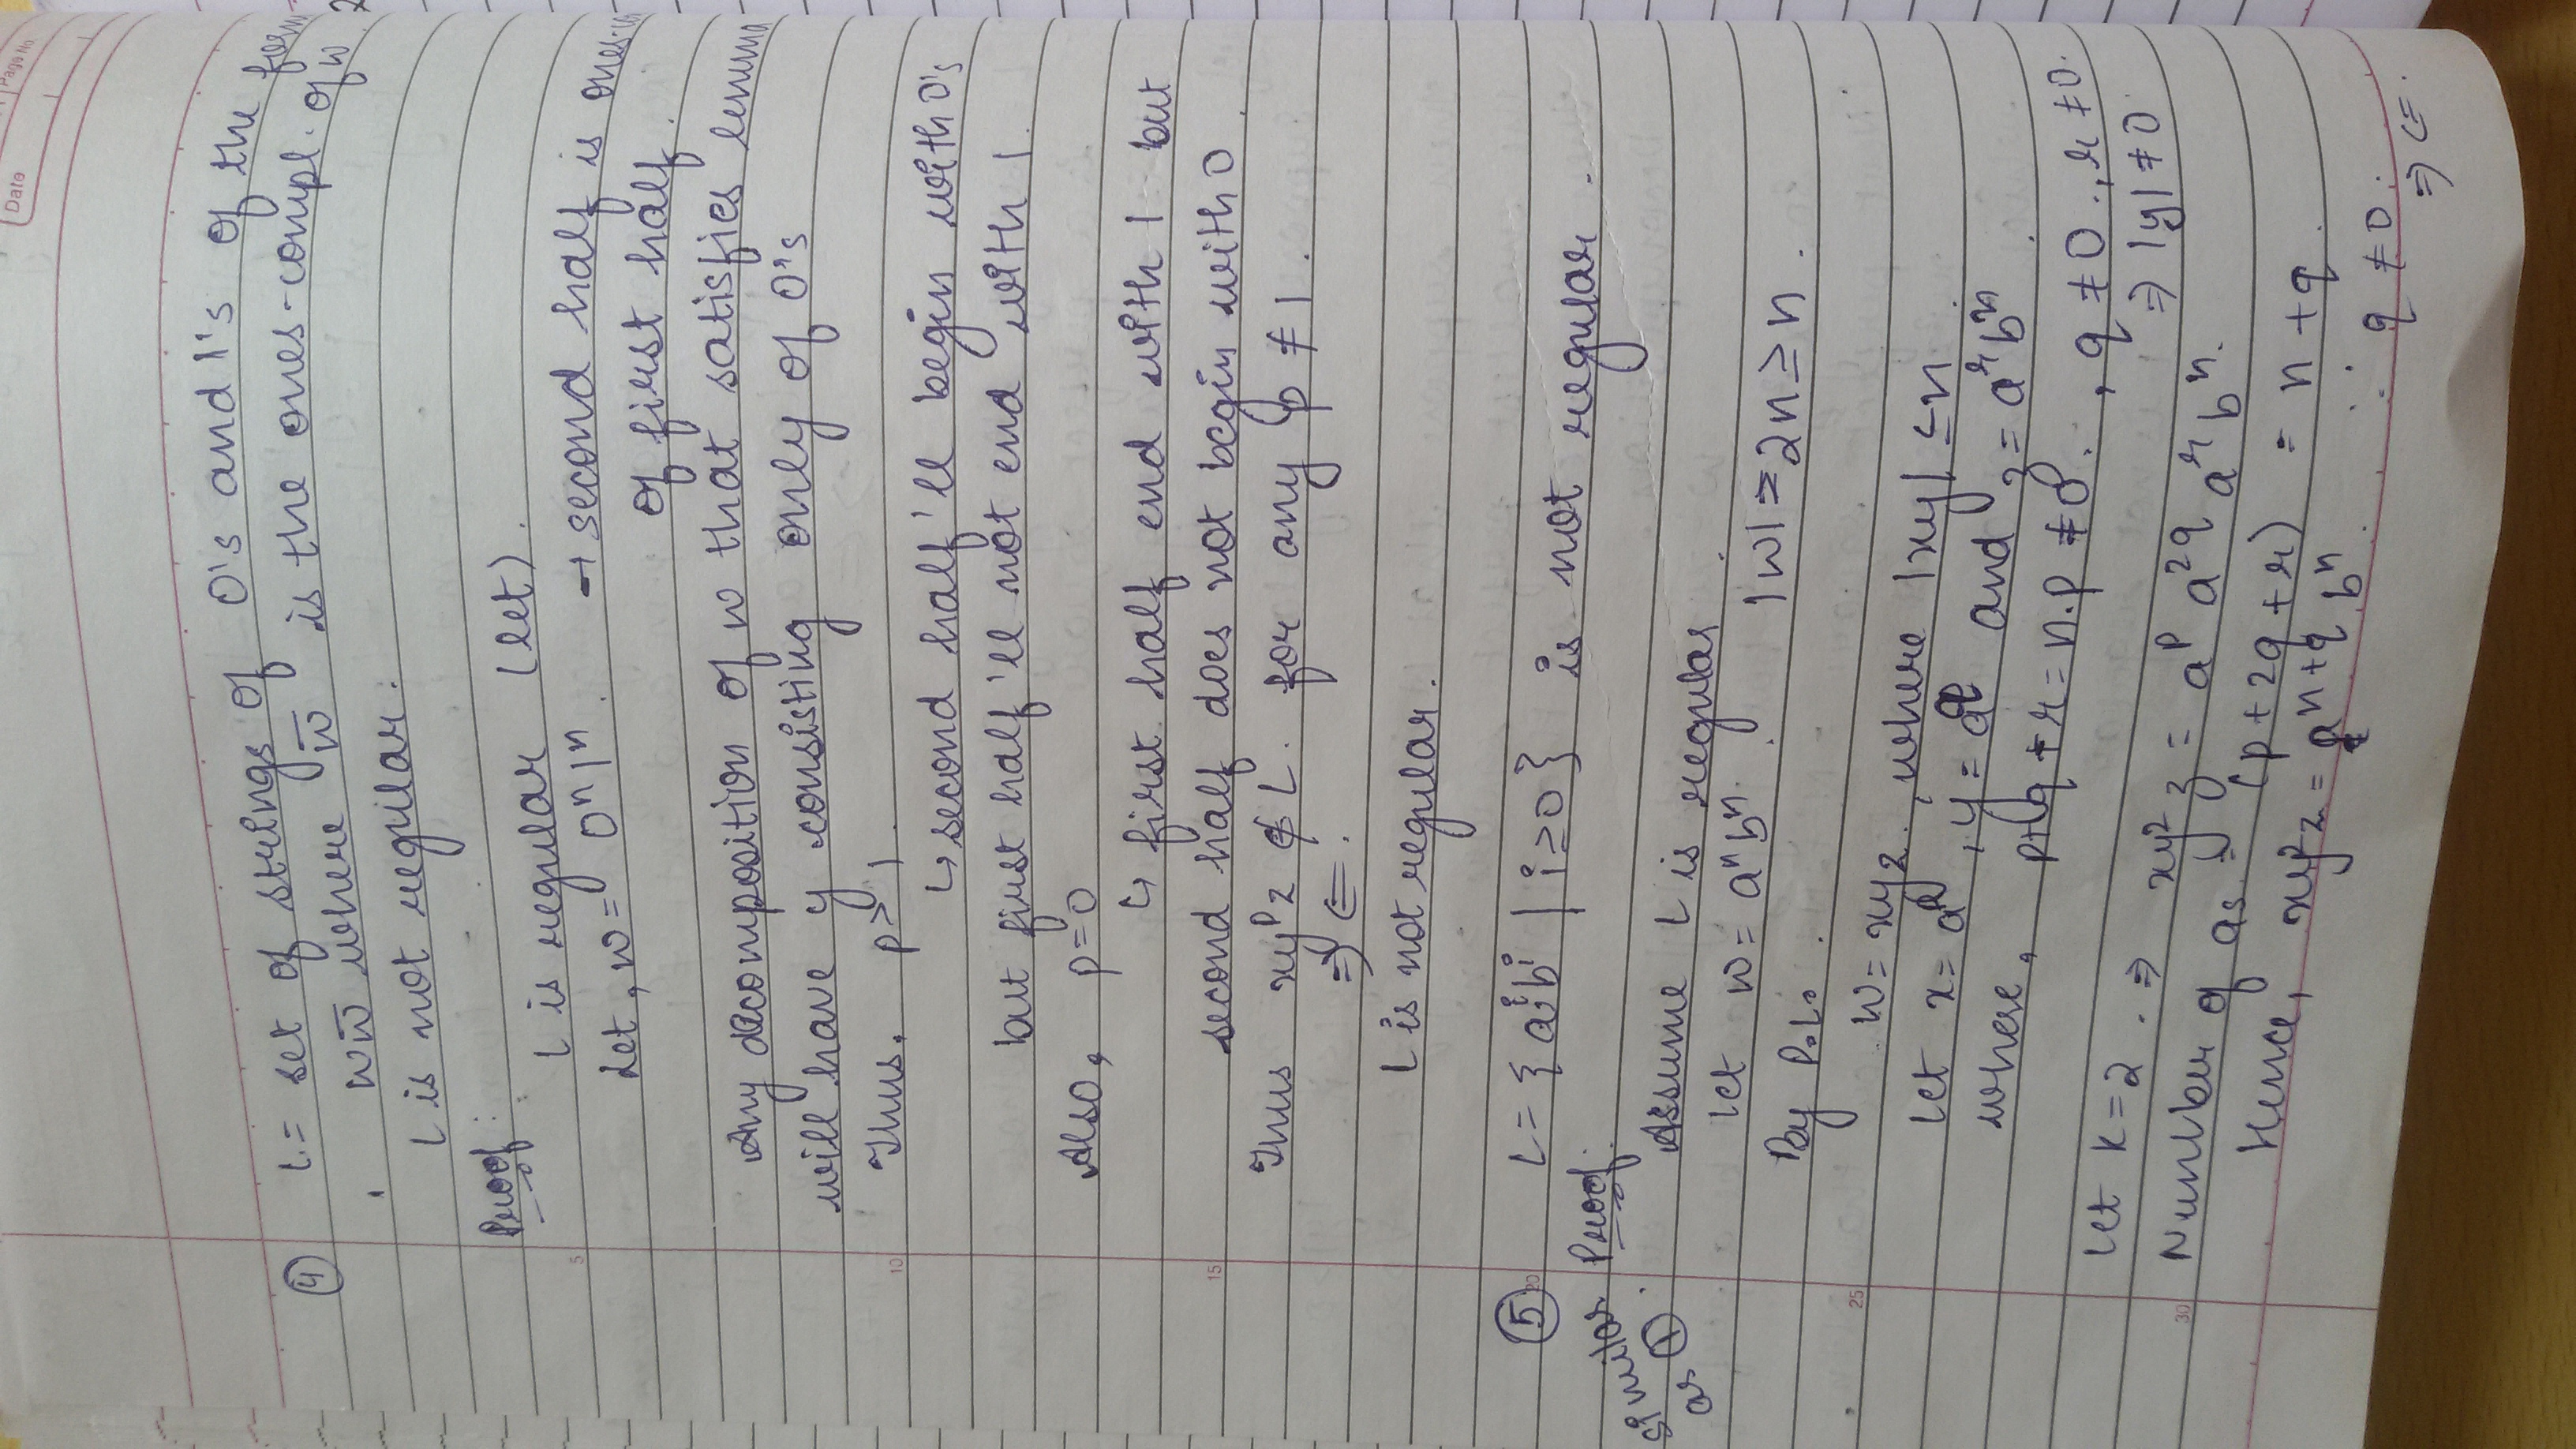 Page No.
Date
④ L = set of strings of 0's and 1's of the form
ww̅ where w̅ is the ones-compl. of w.
L is not regular.
Proof:
L is regular (let).
5
Let, w = 0ⁿ1ⁿ. → second half is ones-
of first half.
Any decomposition of w that satisfies lemma
will have y consisting only of 0's
10
Thus, p > 1.
↳ second half'll begin with 0's
but first half'll not end with 1.
Also, p=0
↳ first half end with 1 but
15
second half does not begin with 0.
Thus xyᵖz ∉ L. for any p ≠ 1.
⇒ ⇐.
L is not regular.
20
⑤ L = {aⁱbⁱ | i≥0} is not regular.
similar as ①.
Proof:
Assume L is regular.
Let w = aⁿbⁿ. |w| = 2n ≥ n.
By P.L.
25
w = xyz, where |xy| ≤ n.
Let x = aᵖ, y = a^q and z = aʳbⁿ.
where, p+q+r = n. p ≠ 0, q ≠ 0, r ≠ 0.
⇒ |y| ≠ 0
Let k=2. ⇒ xy²z = aᵖ a^2q aʳ bⁿ.
30
Number of as = (p+2q+r) = n+q.
Hence, xy²z = a^n+q bⁿ. ∵ q ≠ 0.
⇒ ⇐.